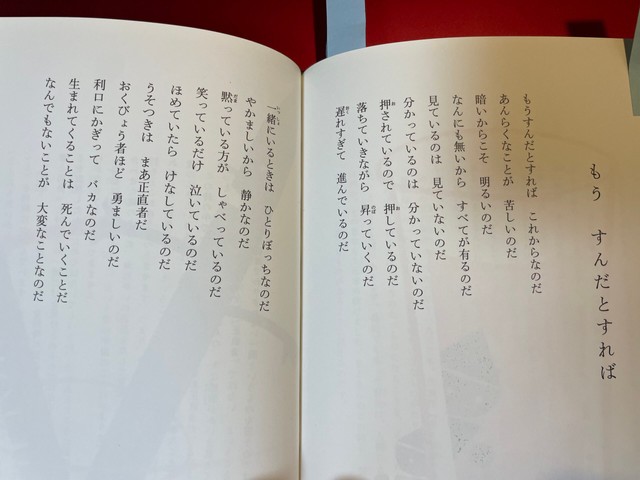 もう すんだとすれば
もうすんだとすれば これからなのだ
あんらくなことが 苦しいのだ
暗いからこそ 明るいのだ
なんにも無いから すべてが有るのだ
見ているのは 見ていないのだ
分かっているのは 分かっていないのだ
押されているので 押しているのだ
落ちていきながら 昇っていくのだ
遅れすぎて 進んでいるのだ
一緒にいるときは ひとりぼっちなのだ
やかましいから 静かなのだ
黙っている方が しゃべっているのだ
笑っているだけ 泣いているのだ
ほめていたら けなしているのだ
うそつきは まあ正直者だ
おくびょう者ほど 勇ましいのだ
利口にかぎって バカなのだ
生まれてくることは 死んでいくことだ
なんでもないことが 大変なことなのだ